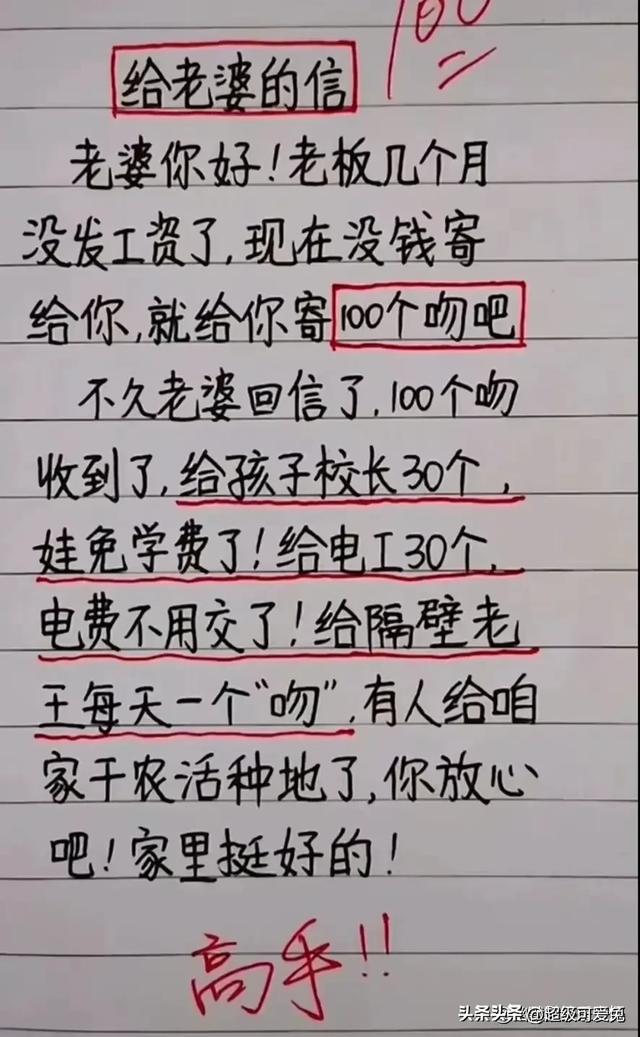 100
给老婆的信
老婆你好！老板几个月
没发工资了，现在没钱寄
给你，就给你寄100个吻吧
不久老婆回信了，100个吻
收到了，给孩子校长30个，
娃免学费了！给电工30个，
电费不用交了！给隔壁老
王每天一个“吻”，有人给咱
家干农活种地了，你放心
吧！家里挺好的！
高手！！
头条头条@超级可爱兔